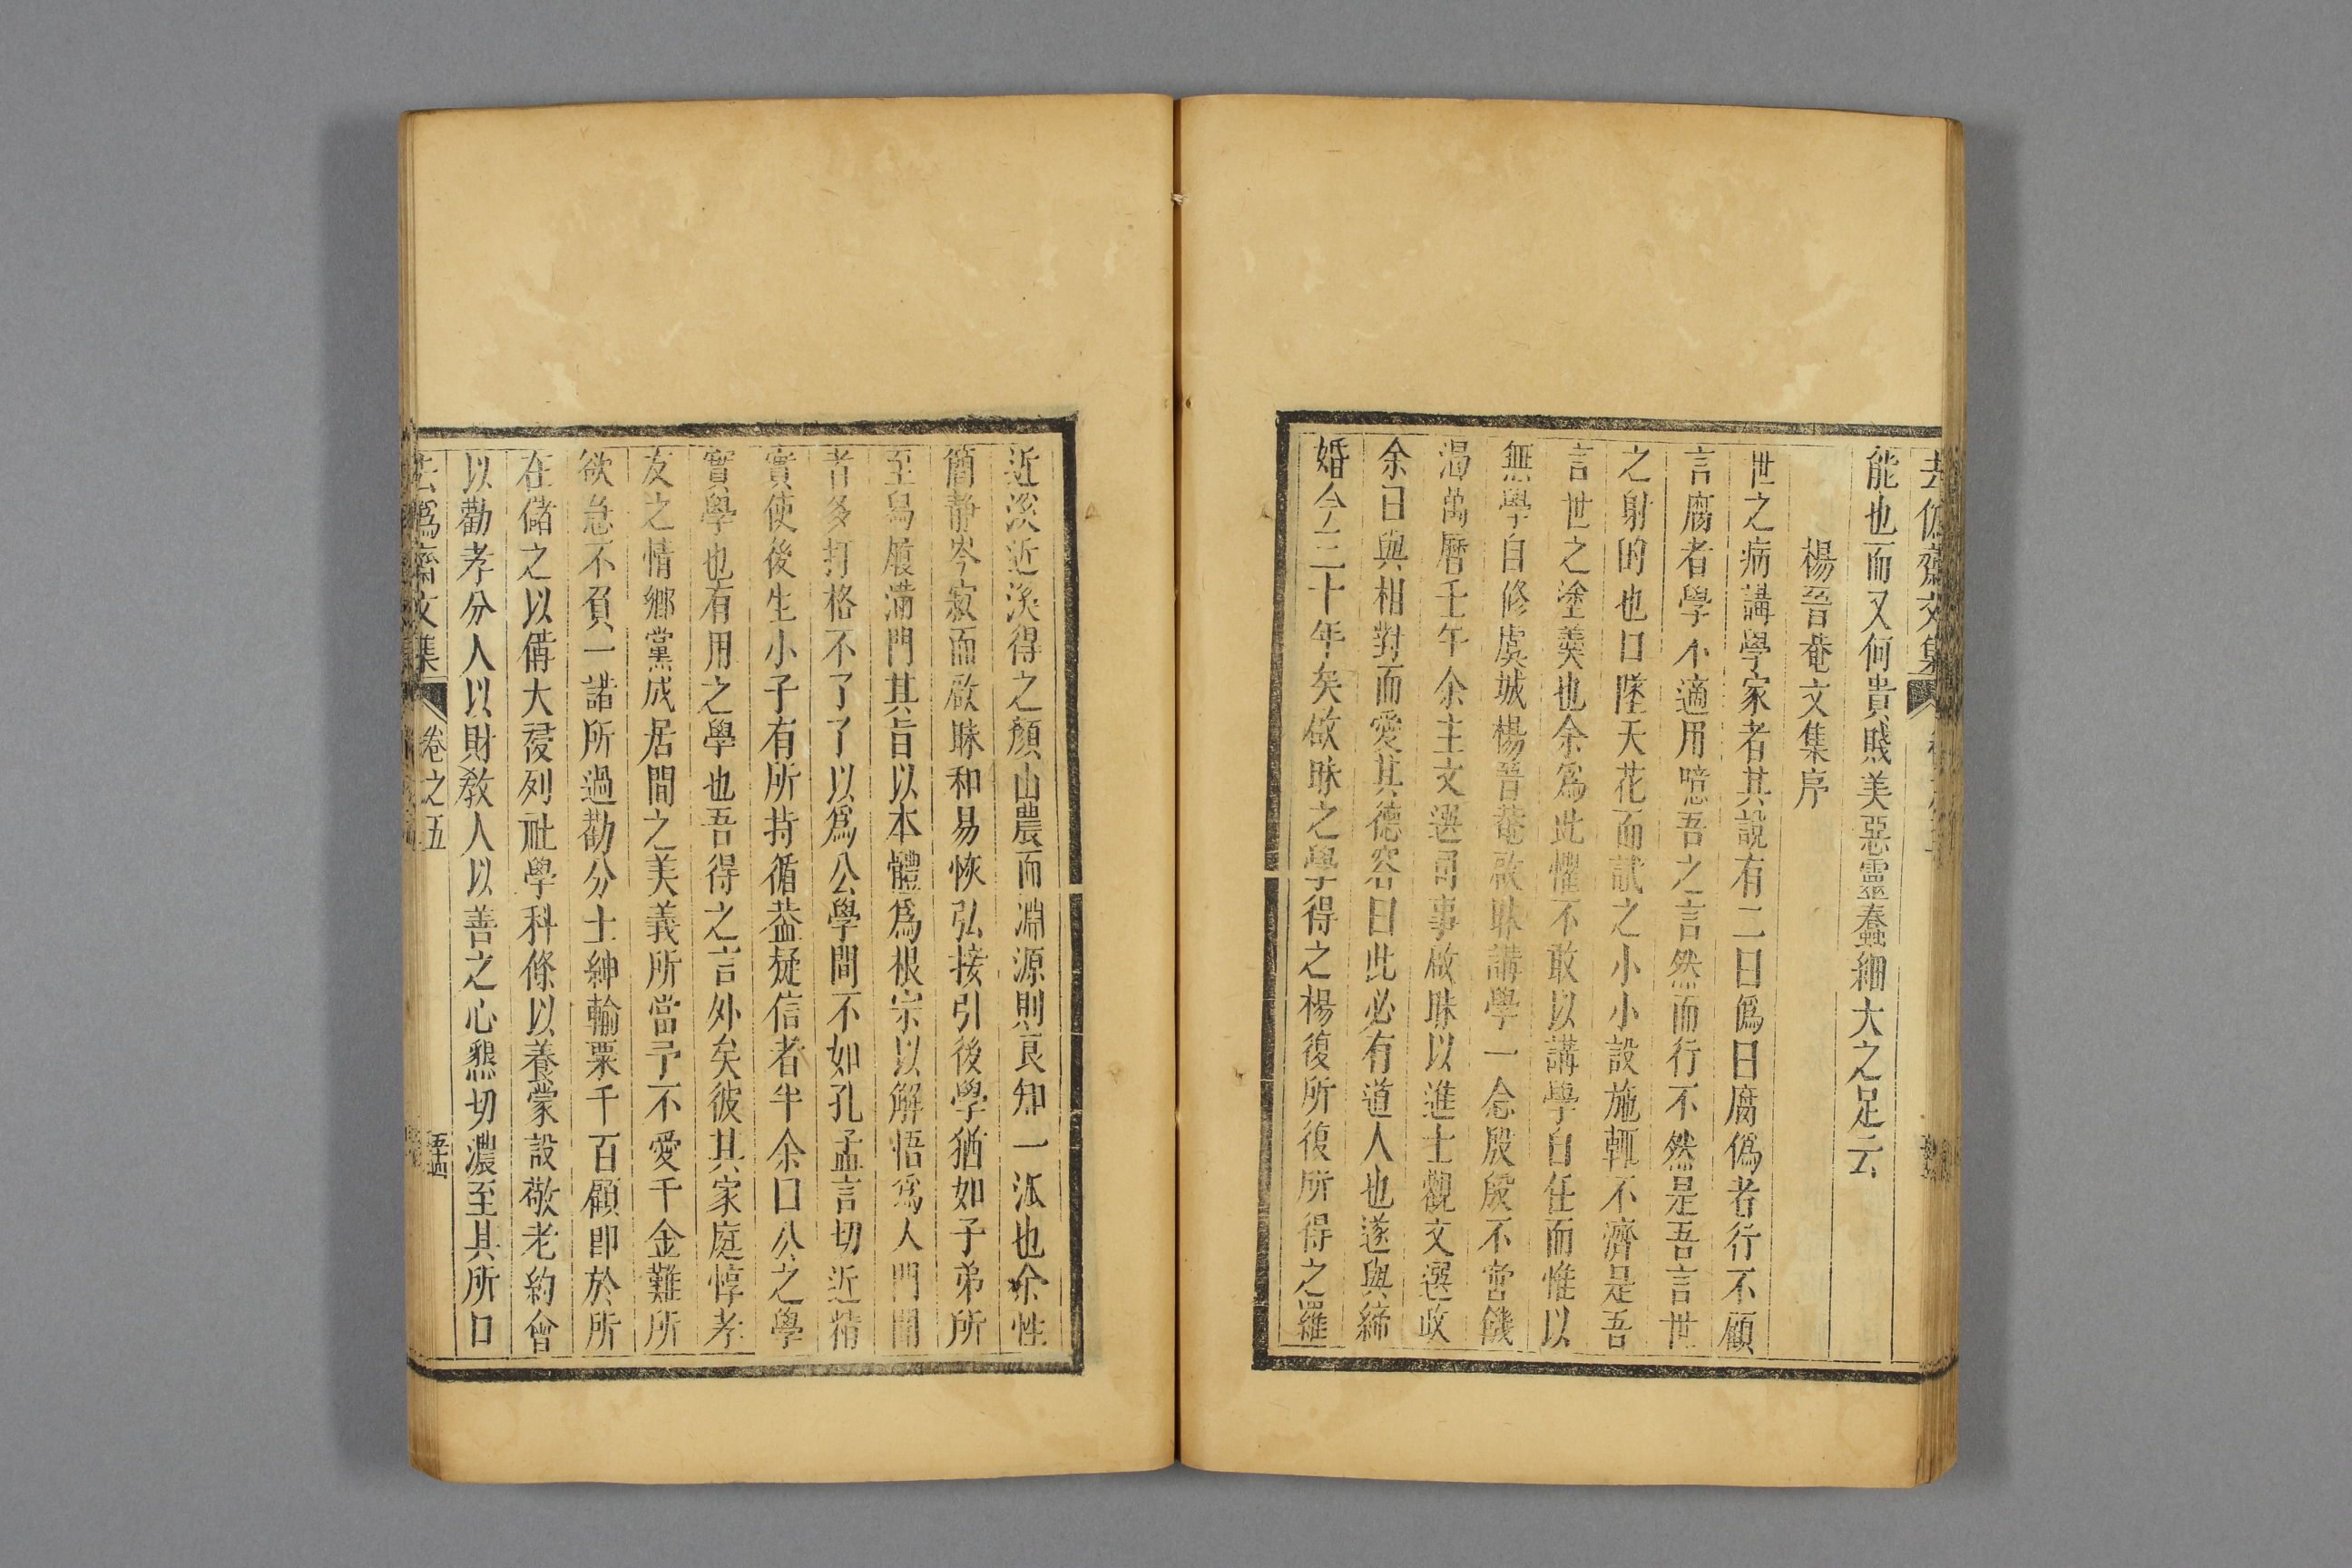 去偽齋文集
能也而又何貴賤美惡靈蠢細大之足云
楊晉菴文集序
世之病講學家者其說有二曰偽曰腐偽者行不顧
言腐者學不適用噫吾之言然而行不然是吾言世
之射的也口墜天花而試之小小設施輒不濟是吾
言世之塗羹也余為此懼不敢以講學自任而惟以
無學自修虞城楊晉菴啟昧講學一念殷殷不啻饑
渴萬曆壬午余主文選司事啟昧以進士觀文選政
余日與相對而愛其德容曰此必有道人也遂與締
婚今三十年矣啟昧之學得之楊復所復所得之羅
近溪近溪得之顏山農而淵源則良知一泒也余性
簡靜岑寂而啟昧和易恢弘接引後學猶如子弟所
至舄履滿門其旨以本體爲根宗以解悟爲人門聞
者多打格不了了以爲公學間不如孔孟言切近精
實使後生小子有所持循益疑信者半余曰公之學
實學也有用之學也吾得之言外矣彼其家庭惇孝
友之情鄉黨成居間之美義所當予不愛千金難所
欲急不負一諾所過勸分士紳輸粟千百顧即於所
在儲之以備大祲列社學科條以養蒙設敬老約會
以勸孝分人以財教人以善之心懇切濃至其所口
去僞齋文集 卷之五